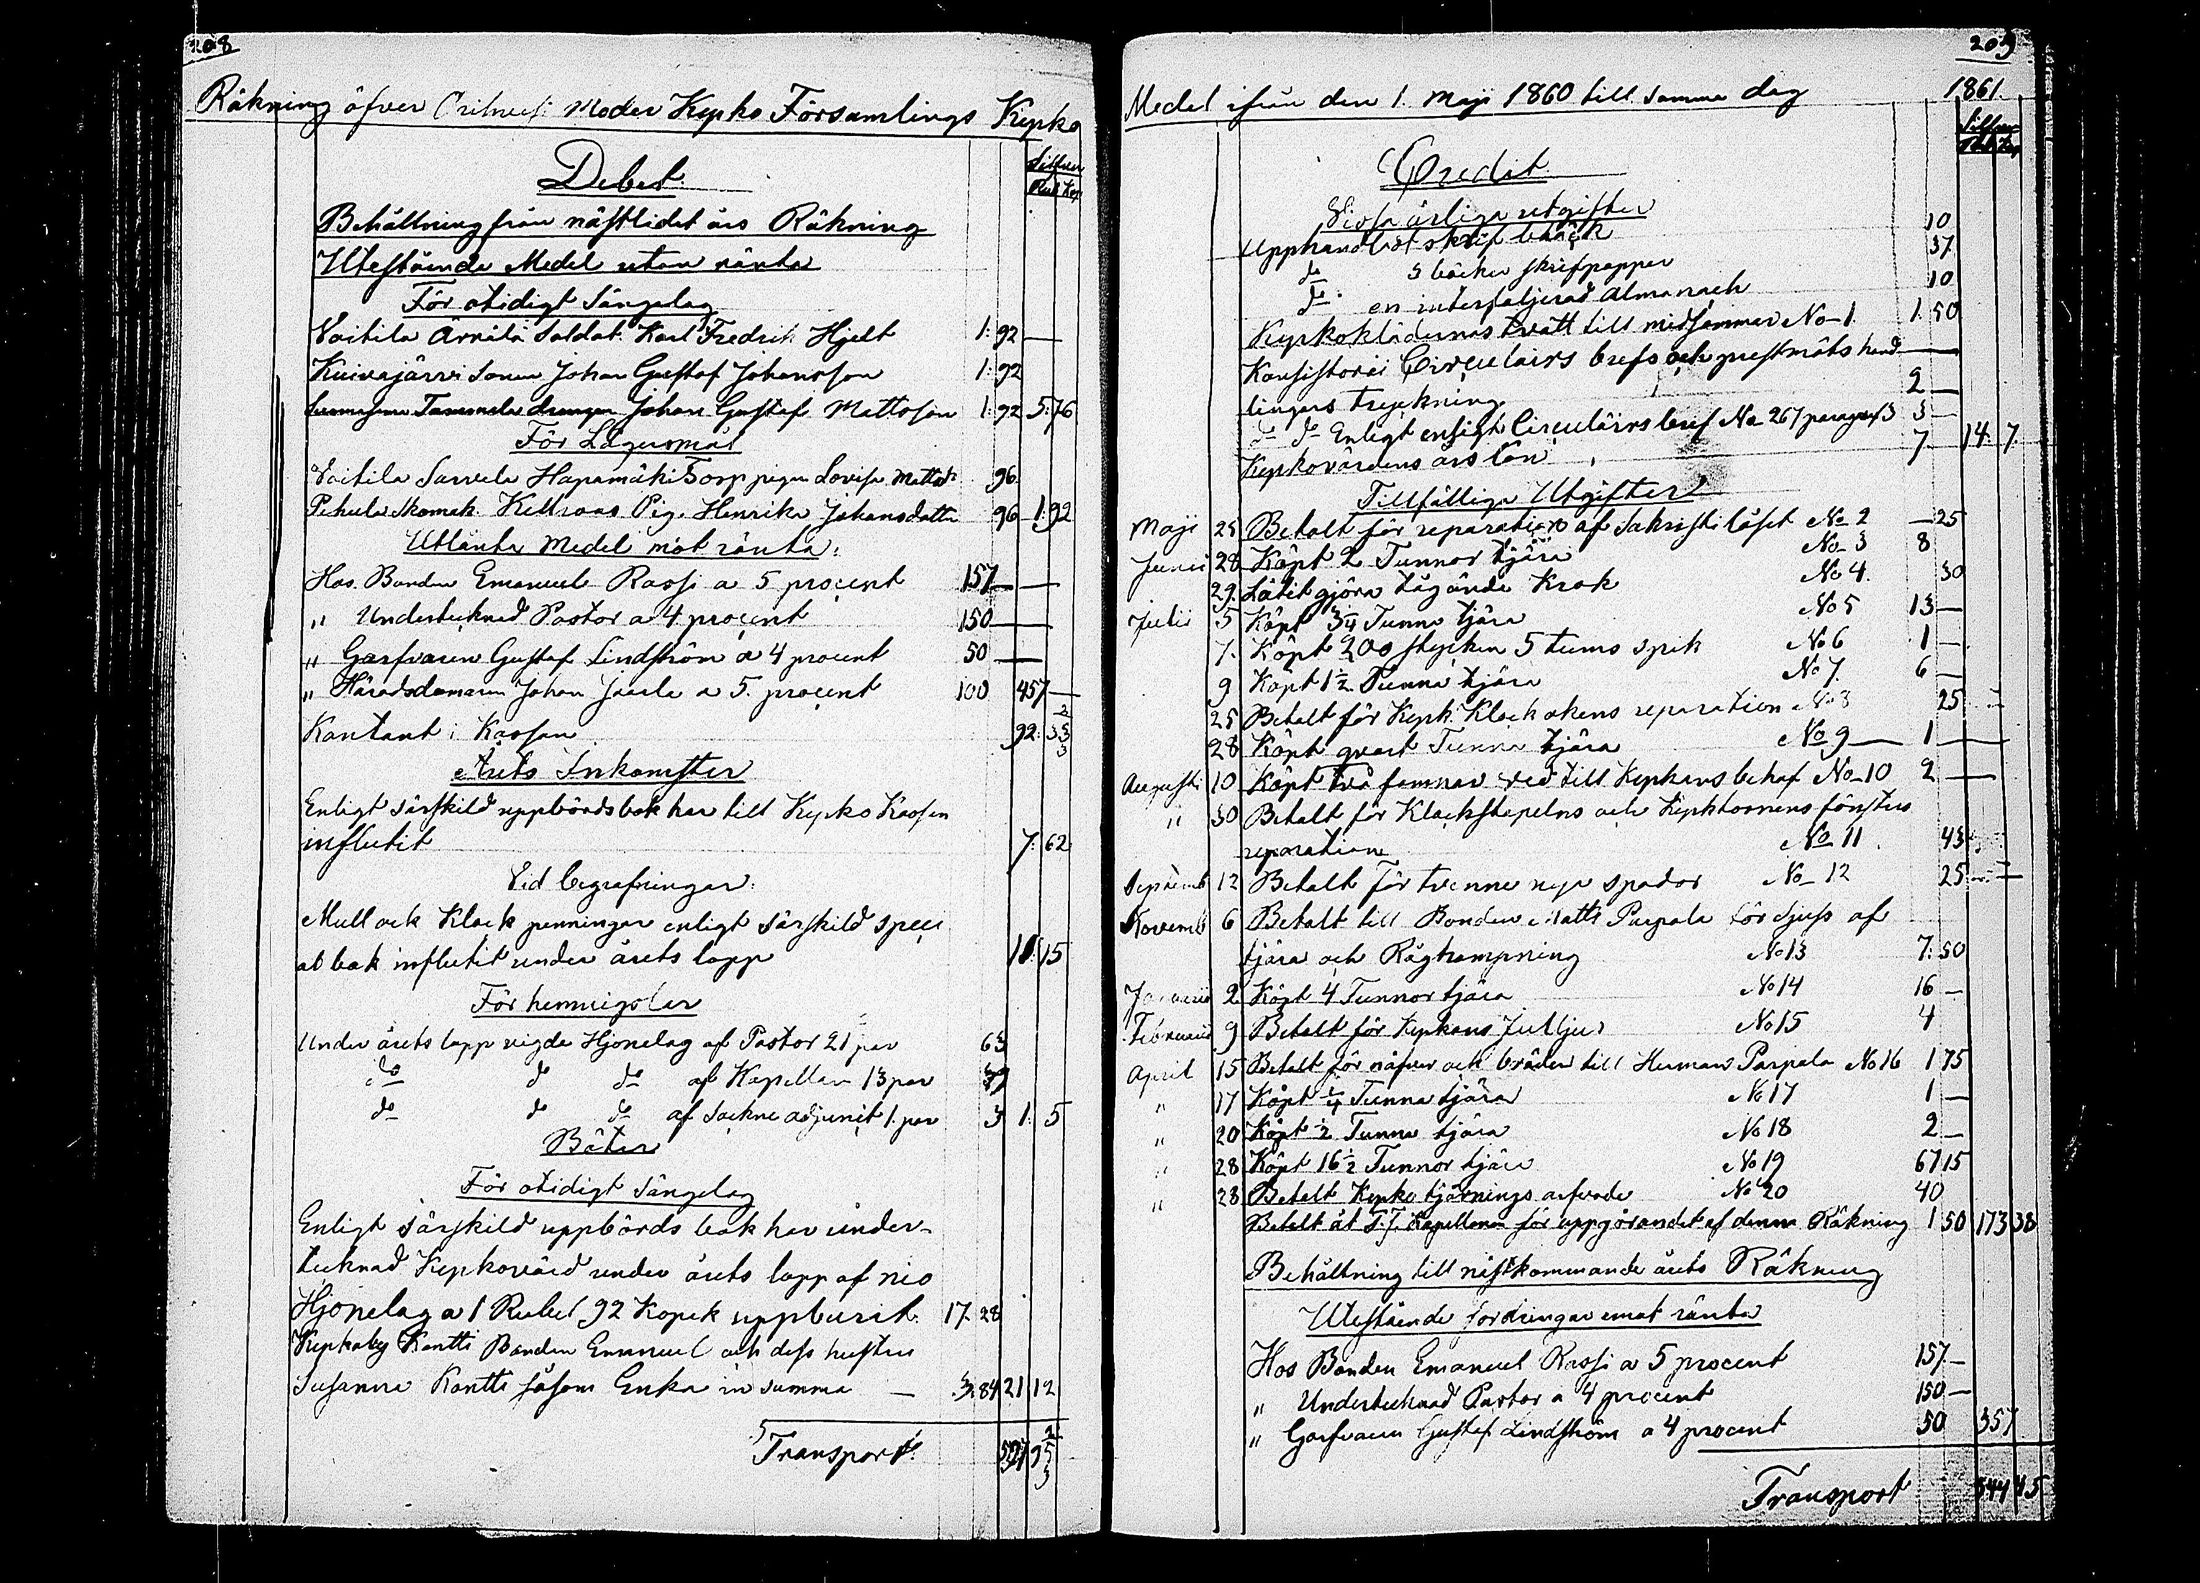 208
Räkning öfver Orihvesi Moder Kyrko Församlings Kyrko
Silfver
Rub. Kop.
Debet.
Behållning från nästlidet års Räkning
Utestående Medel utan ränta
För otidigt Sängelag
Voitila Ärnilä Soldat Karl Fredrik Hjelt 1: 92 —
Kuivajärvi Sonen Johan Gustaf Johansson 1: 92
Tammela drengen Johan Gustaf Mattsson 1: 92 5: 76
För Lägersmål
Voitila Sarvela Hapamäki Torp pigan Lovisa Mattsd: 96.
Pehula Skomak. Pig. Henrika Johansdotter 96 1: 92
Utlånta Medel mot ränta:
Hos Bonden Emanuel Rassi a 5 procent 157 — —
" Undertecknad Pastor a 4 procent 150 —
" Garfvaren Gustaf Lindström a 4 procent 50 —
" Häradsdomaren Johan Jaarla a 5. procent 100 457 —
Kontant i Kassan 92: 33 2/3
Årets Inkomster
Enligt särskild uppbördsbok har till Kyrko Kassan
influtit 7: 62
Vid begrafningar:
Mull och Klock penningar enligt särskild speci
al bok influtit under årets lopp 11: 15
För hemmigslar
Under årets lopp vigda Hjonelag af Pastor 21 par 63
do do do af Kapellan 13 par 39
do do do af Sockne adjunct 1. par 3 1: 5
Böter
För otidigt Sängelag
Enligt särskild uppbörds bok har under-
tecknad Kyrkovärd under årets lopp af nio
Hjonelag a 1 Rubel 92 Kopek uppburit. 17. 28
Kyrkoby Kontti Bonden Emanuel och dess hustru
Susanna Kontti såsom Enka in summa — 3: 84 21 12
Transport. 597 95 2/3
209
Medel ifrån den 1. Maji 1860 till samma dag 1861.
Silfver
Rub. Kop
Credit
Vissa årliga utgifter
Upphandlat skrif bläck 10
do 3 böcker skrifpapper 37
do en interfoljerad Almanach 10
Kyrkoklädernas tvätt till midsommar No 1 1. 50
Konsistorii Circulairs brefs och prestmöts hand —
lingers tryckning 2 —
do do Enligt ensigt Circulairs bref No 267 paragraf 3 3 —
Kyrkovärdens års lön 7 — 14. 7.
Tillfälliga Utgifter
Maji 25 Betalt för reparation af Sakristi låset No 2 — 25
Junii 28 Köpt 2 Tunnor tjära No 3 8
29. Låtit gjöra tågände Krok No 4. 30
Julii 5 Köpt 3 1/4 Tunna tjära No 5 13 —
7. Köpt 200 stycken 5 tums spik No 6 1 —
9 Köpt 1 1/2 Tunna tjära No 7. 6 —
25 Betalt för Kyrk. Klockokens reparation No 8 25
28 Köpt qvart Tunna tjära No 9 — 1 —
Augusti 10 Köpt två famnar ved till Kyrkans behof No 10 2 —
" 30 Betalt för Klockstapelns och Kyrktornens fönsters
reparation No 11 43
Septemb 12 Betalt för tvenne nya spador No 12 25
Novemb 6 Betalt till Bonden Matts Parpala för skjuss af
tjära och Rågtrampning No 13 7: 50
Januarii 2 Köpt 4 Tunnor tjära No 14 16 —
Februarii 9 Betalt för Kyrkans Jul ljus No 15 4
April 15 Betalt för näfver och bräder till Herman Parpala No 16 1 75
" 17 Köpt 1/4 Tunna tjära No 17 1 —
" 20 Köpt 1/2 Tunna tjära No 18 2 —
" 28 Köpt 16 1/2 Tunnor tjära No 19 67 15
" 28 Betalt Kyrko tjärnings arfvode No 20 40
Betalt åt T.f. Kapellanen för uppgörandet af denna Räkning 1 50 173 38
Behållning till nästkommande årets Räkning
Utestående fordringar emot ränta
Hos Bonden Emanuel Rassi a 5 procent 157. —
" Undertecknad Pastor a 4 procent 150 —
" Garfvaren Gustaf Lindström a 4 procent 50 357
Transport 544 45